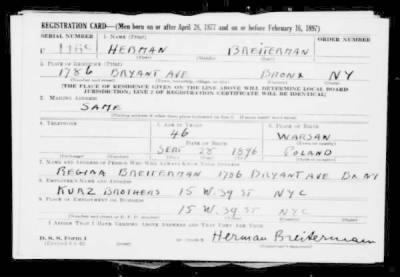 REGISTRATION CARD—(Men born on or after April 28, 1877 and on or before February 16, 1897)
SERIAL NUMBER 1. NAME (Print) ORDER NUMBER
HERMAN BREITERMAN
2. PLACE OF RESIDENCE (Print)
1786 BRYANT AVE BRONX NY
[THE PLACE OF RESIDENCE GIVEN ON THE LINE ABOVE WILL DETERMINE LOCAL BOARD
JURISDICTION; LINE 2 OF REGISTRATION CERTIFICATE WILL BE IDENTICAL]
3. MAILING ADDRESS
SAME
4. TELEPHONE 5. AGE IN YEARS 6. PLACE OF BIRTH
46 WARSAW
DATE OF BIRTH
SEPT 28 1896 POLAND
7. NAME AND ADDRESS OF PERSON WHO WILL ALWAYS KNOW YOUR ADDRESS
REGINA BREITERMAN 1786 BRYANT AVE BX NY
8. EMPLOYER'S NAME AND ADDRESS
KURZ BROTHERS 15 W. 39 ST NYC
9. PLACE OF EMPLOYMENT OR BUSINESS
15 W. 39 ST NYC
I AFFIRM THAT I HAVE VERIFIED ABOVE ANSWERS AND THAT THEY ARE TRUE.
D. S. S. Form 1
Herman Breiterman